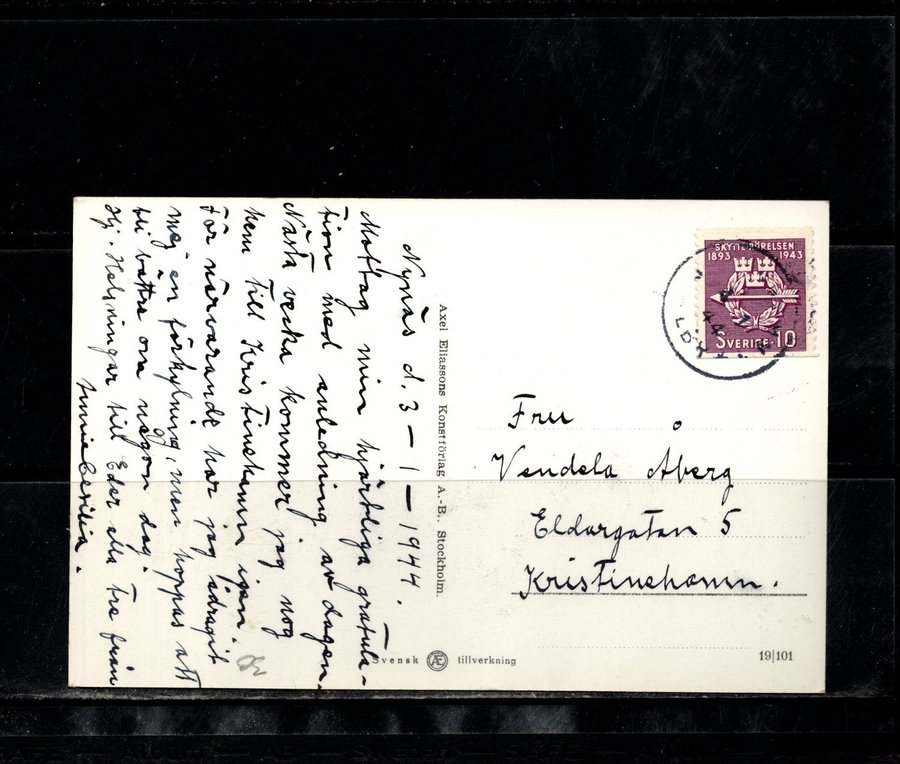 Nynäs d. 3 – 1 – 1944.
Mottag min hjärtliga gratula-
tion med anledning av dagen.
Nästa vecka kommer jag nog
hem till Kristinehamn igen.
För närvarande har jag ådragit
mej en förkylning, men hoppas att
bli bättre om någon dag.
Hj. Helsningar till Eder alla tre från
Axel Eliassons Konstförlag A.-B., Stockholm.
SKYTTERÖRELSEN
1893 1943
SVERIGE 10
Fru
Vendela Åberg
Eldargatan 5
Kristinehamn.
Svensk tillverkning
19|101